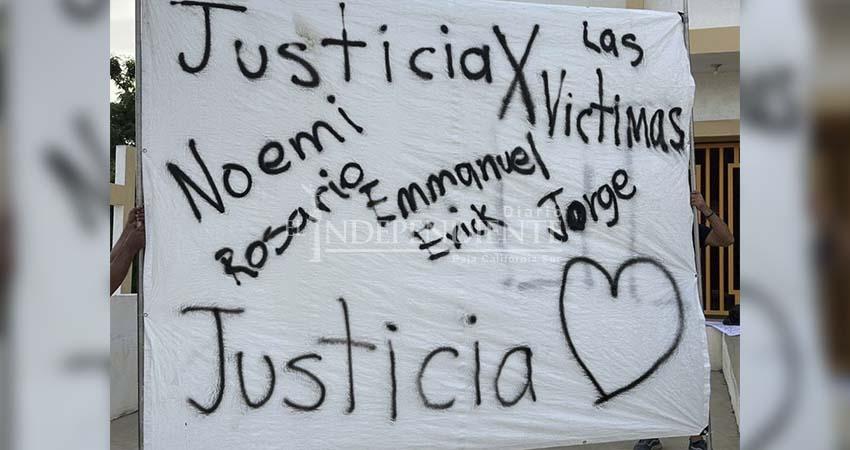 Justicia X Las
Victimas
Noemi
Rosario Emmanuel
Erick Jorge
Diario
El INDEPENDIENTE
Baja California Sur
Justicia